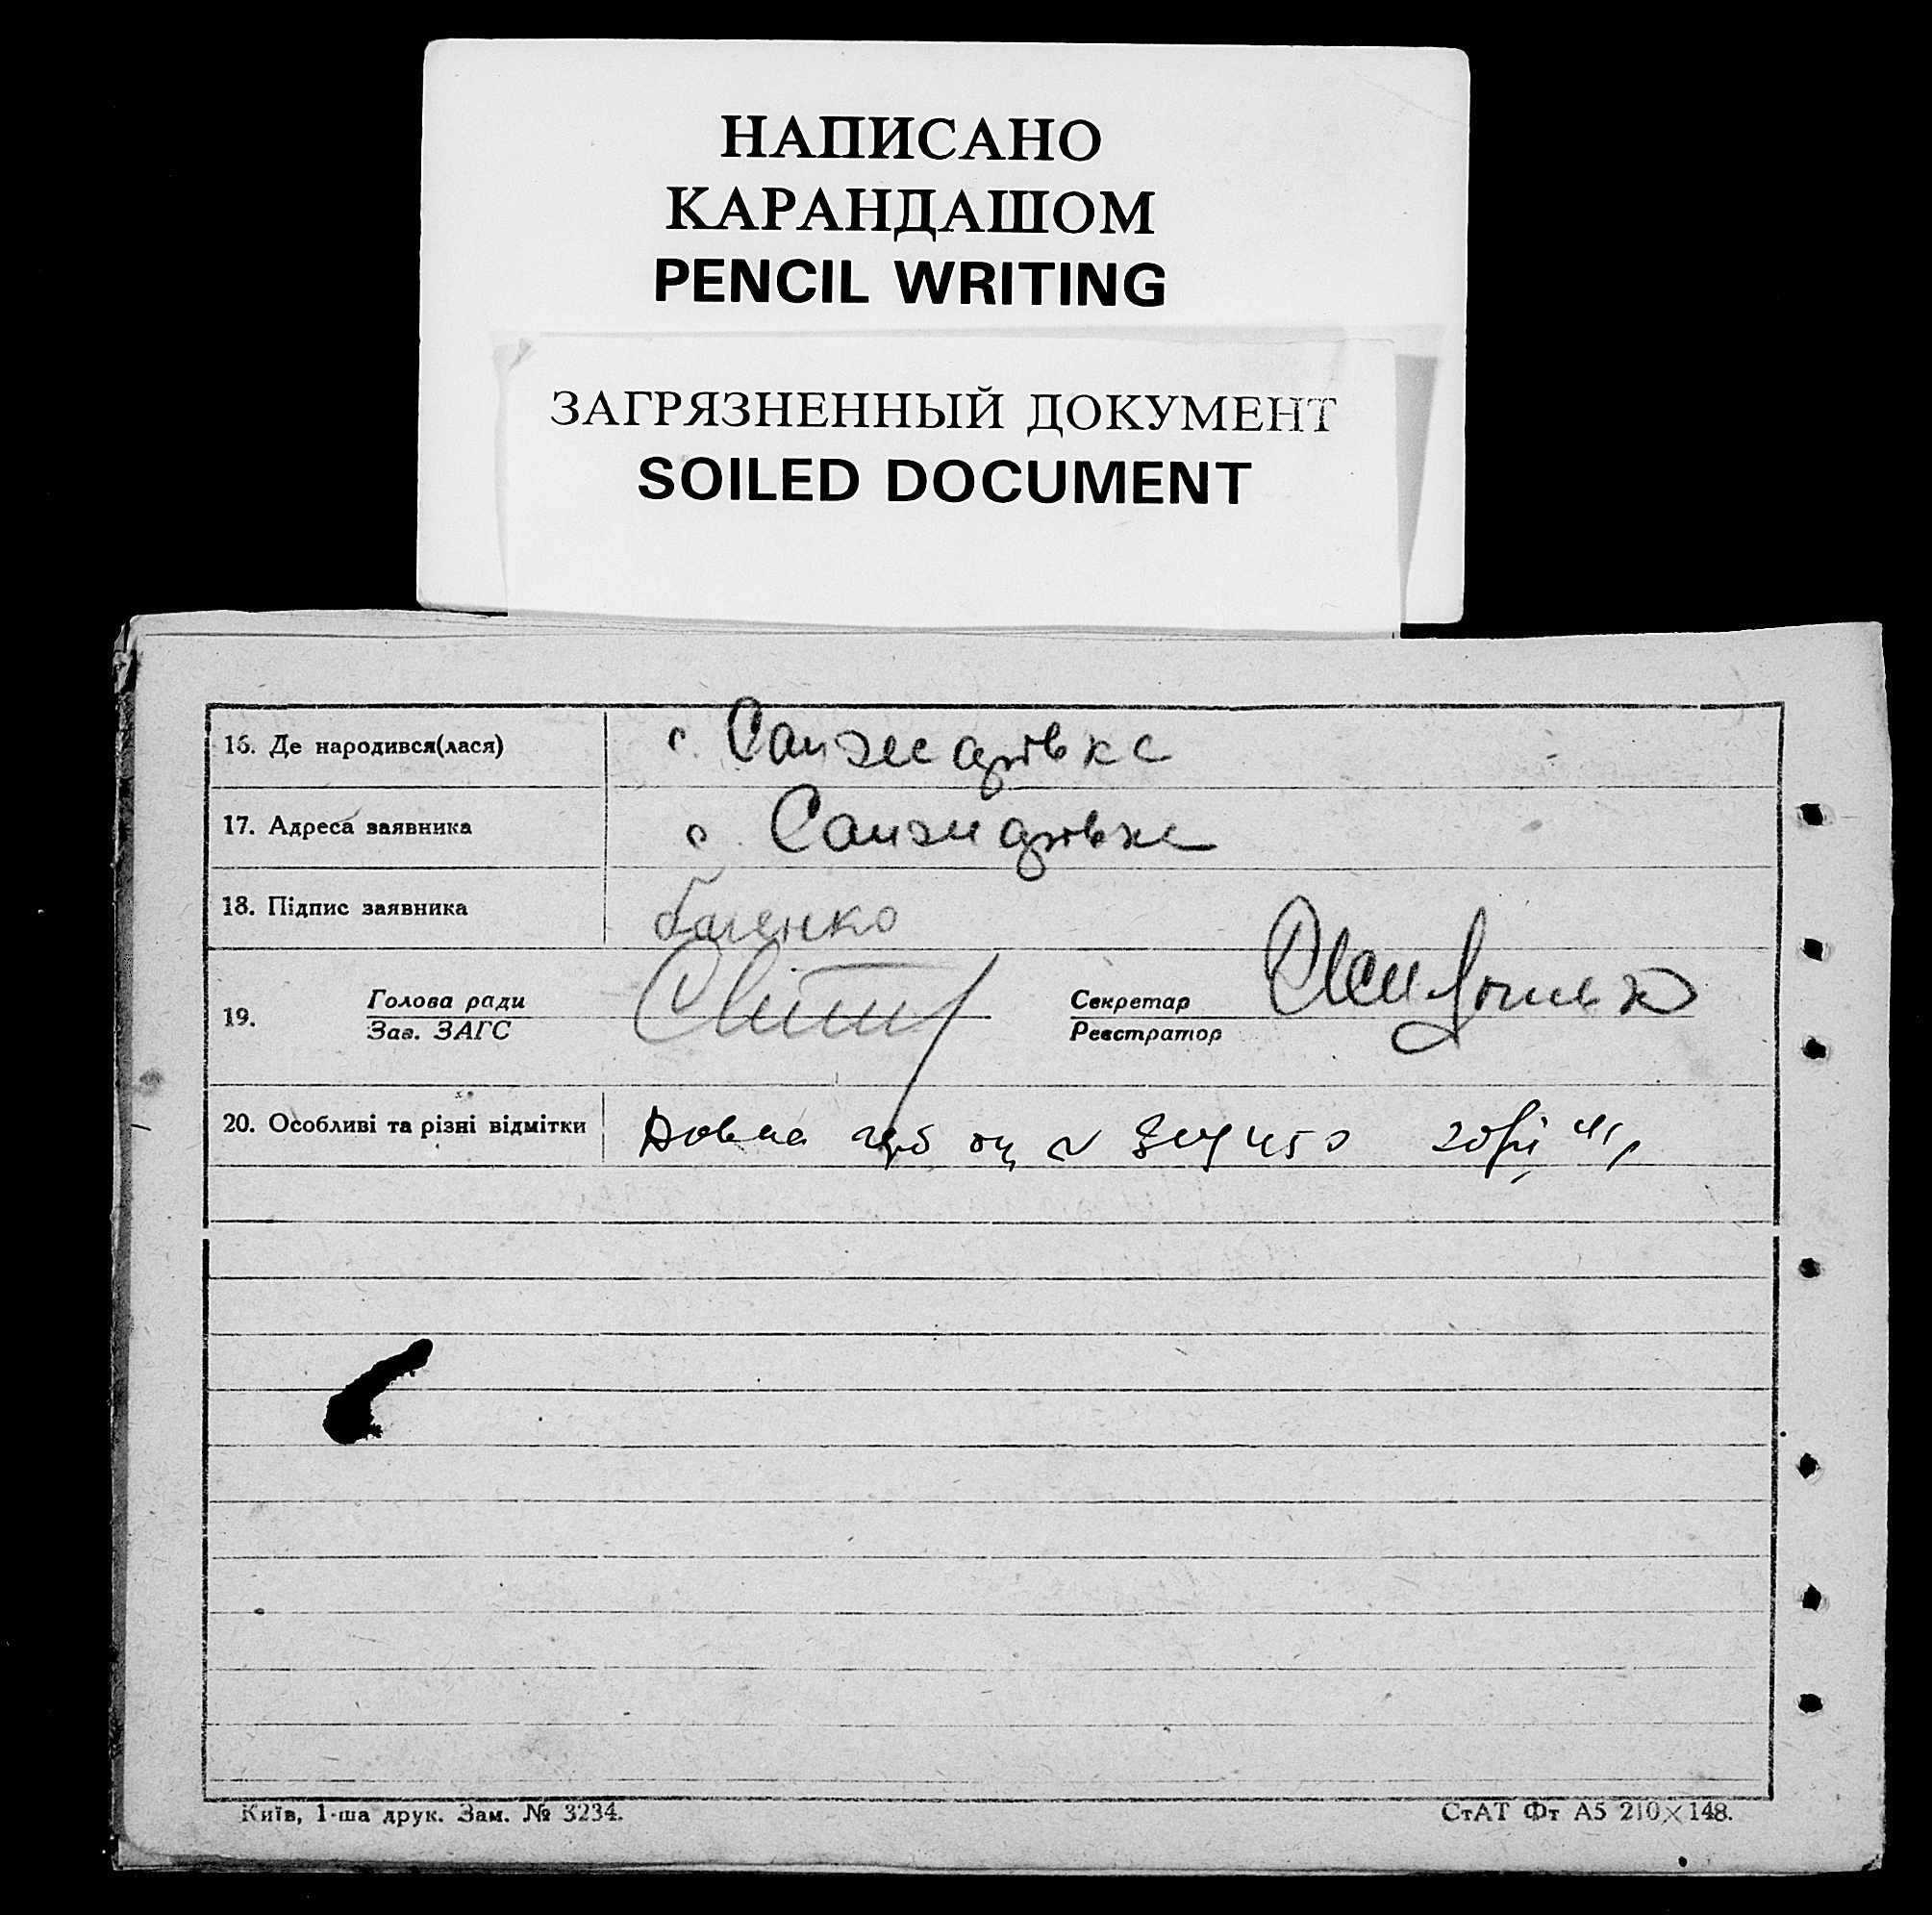 НАПИСАНО
КАРАНДАШОМ
PENCIL WRITING
ЗАГРЯЗНЕННЫЙ ДОКУМЕНТ
SOILED DOCUMENT
16. Де народився(лася) с. Санжарівка
17. Адреса заявника с. Санжарівка
18. Підпис заявника
19. Голова ради Секретар
Зав. ЗАГС Реєстратор
20. Особливі та різні відмітки
Київ, 1-ша друк. Зам. № 3234. СтАТ Фт А5 210×148.